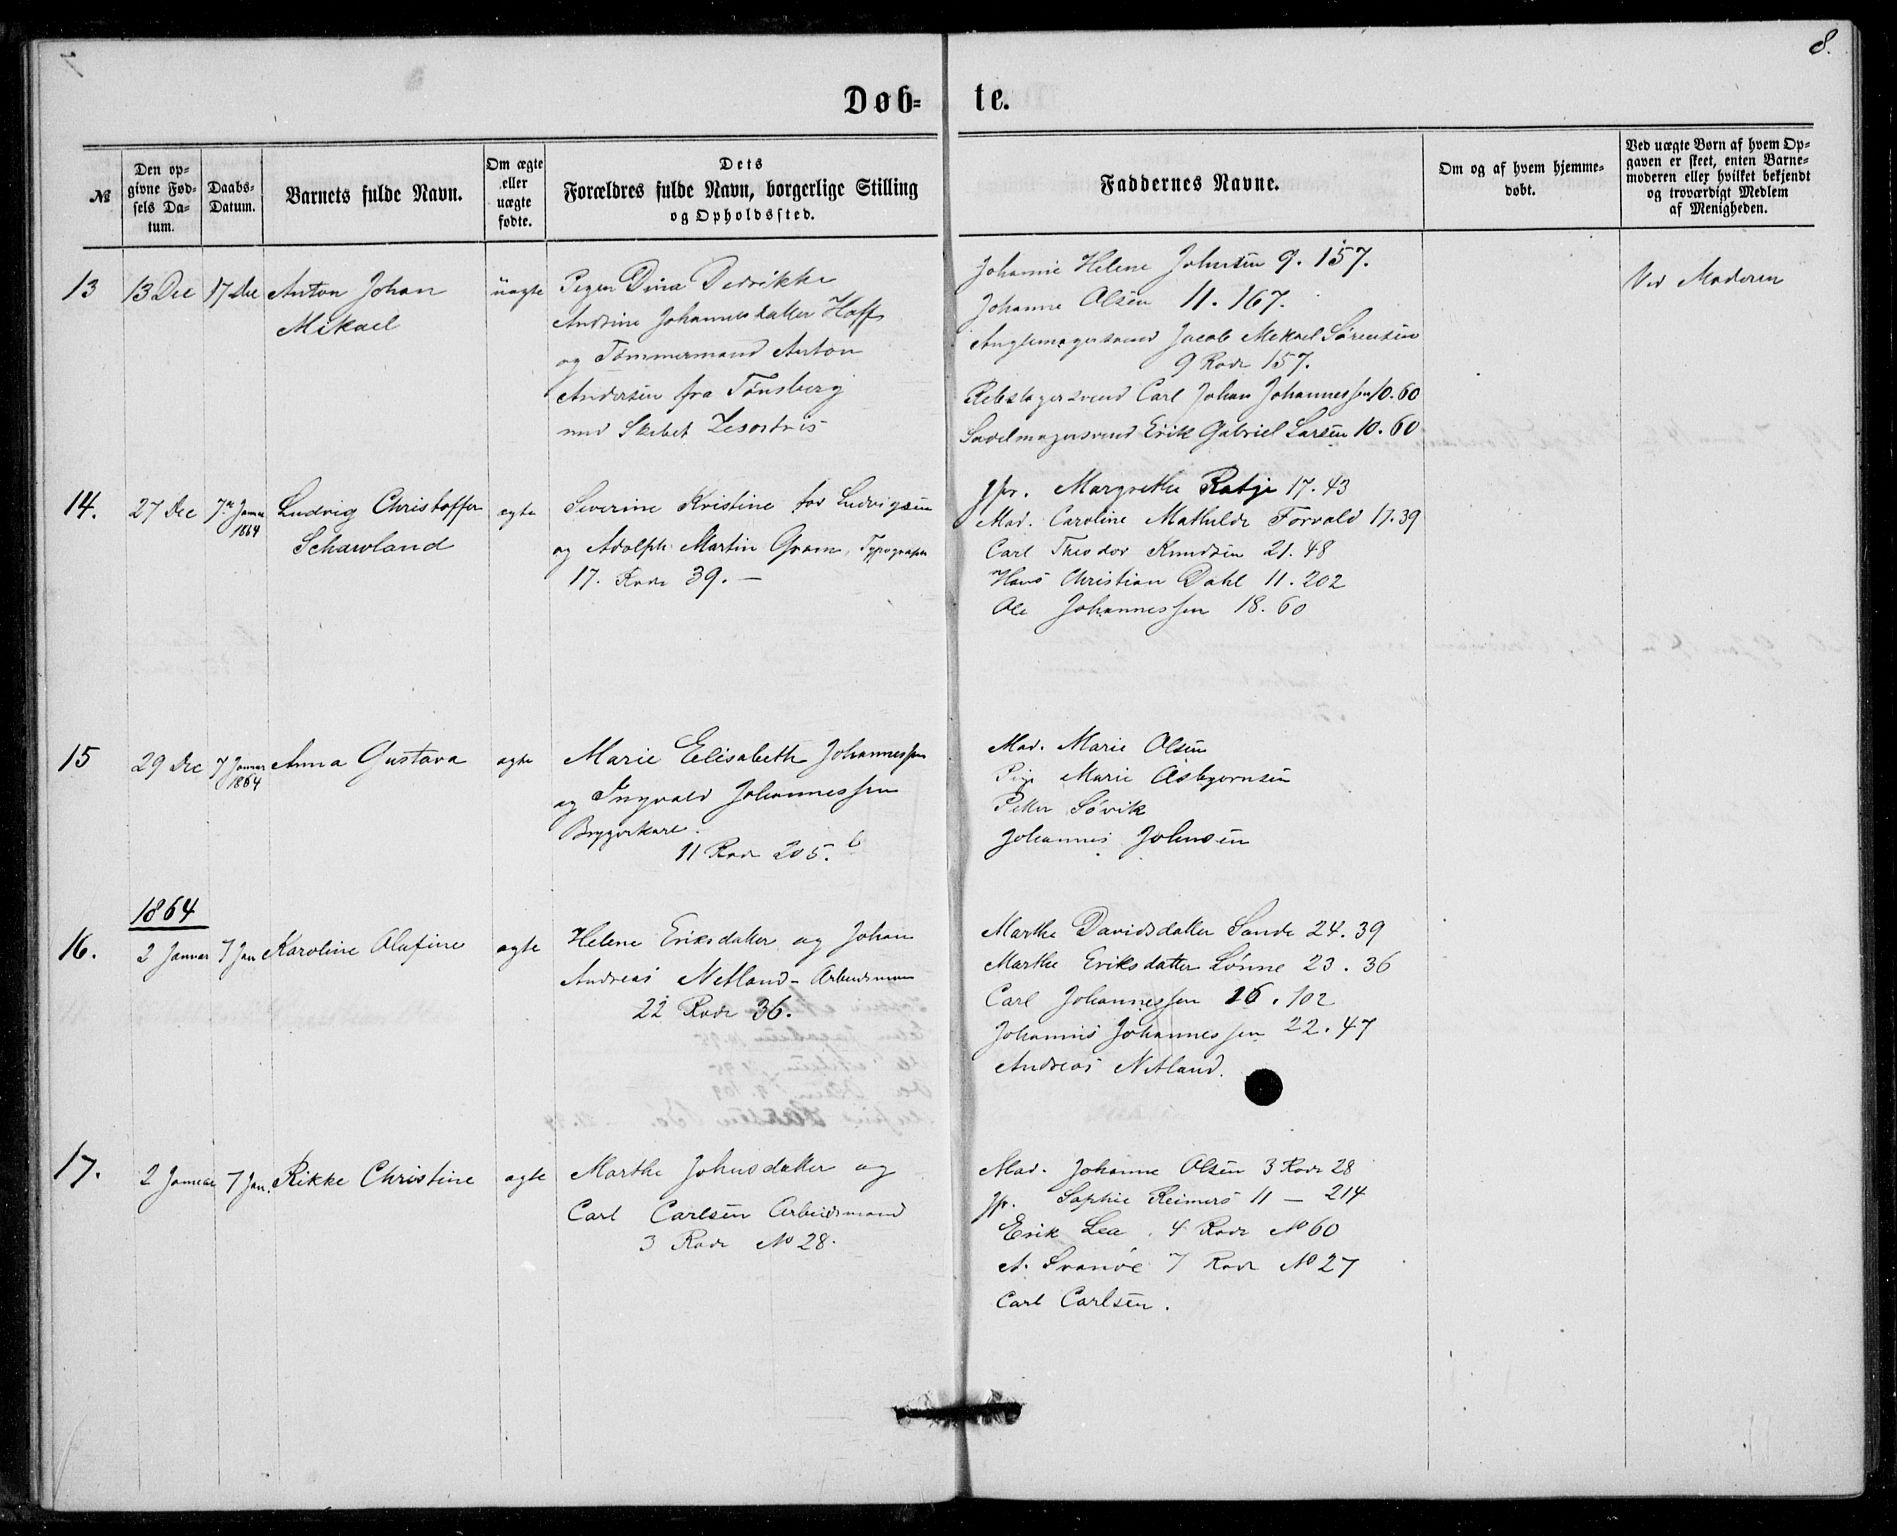 8.
Døb- te.
№
Den opgivne Fødsels Datum.
Daabs-Datum.
Barnets fulde Navn.
Om ægte eller uægte fødte.
Dets Forældres fulde Navn, borgerlige Stilling og Opholdssted.
Faddernes Navne.
Om og af hvem hjemmedøbt.
Ved uægte Børn af hvem Opgaven er skeet, enten Barnemoderen eller hvilket bekjendt og troværdigt Medlem af Menigheden.
13 13 Dec 17 Dec Anton Johan
Mikael
uægte
Pigen Dina Didrikke
Andrine Johannesdatter Hoff
og Tømmermand Anton
Andersen fra Tønsberg
med Skibet
Johanne Helene Johnsen 9. 157.
Johanne Olsen 11. 167.
Jacob Mekael Sørensen
9 Rode 157.
Rebslagersvend Carl Johan Johannessen 10. 60
Sadelmagersvend Erik Gabriel Larsen 10. 60
Ved Moderen
14. 27 Dec 7de Januar 1864 Ludvig Christoffer
Schawland
egte
Severine Kristine fød Ludvigsen
og Adolph Martin Gram, Typograph
17. Rode 39. –
Jfr. Margrethe Ratje 17. 43
Mad. Caroline Mathilde Forvald 17. 39
Carl Theodor Knudsen 21. 48
Hans Christian Dahl 11. 202
Ole Johannessen 18. 60
15 29 Dec 7 Januar 1864 Anna Gustava
egte
Marie Elisabeth Johannessen
og Ingvald Johannessen
Bryggerkarl.
11 Rode 205. b
Mad. Marie Olsen
Pige Marie Asbjørnsen
Peter Søvik
Johannes Johnsen
1864
16. 2 Januar 7 Jan Karoline Olufine
egte
Helene Eriksdatter og Johan
Andreas Netland - Arbeidsman
22 Rode 36.
Marthe Davidsdatter Sande 24. 39
Marthe Eriksdatter Lønne 23. 36
Carl Johannessen 16. 102
Johannes Johannessen 22. 47
Andreas Netland.
17. 2 Januar 7 Jan. Rikke Christine
egte
Marthe Johnsdatter og
Carl Carlsen Arbeidsmand
3 Rode No 28.
Mad. Johanne Olsen 3 Rode 28
Jfr. Sophie Reimers 11 – 214
Erik Lea. 4 Rode No 60
A. Svanøe 7 Rode No 27
Carl Carlsen.